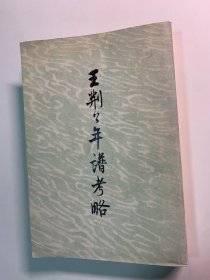 王荆公年譜考略